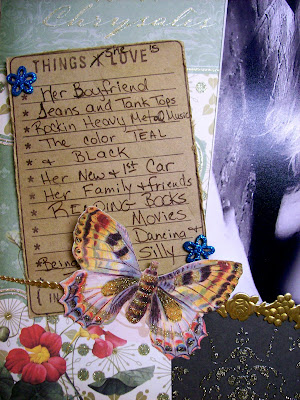 Chrysalis
THINGS she LOVE is
* Her Boyfriend
* Jeans and Tank Tops
* Rockin Heavy Metal Music
* The color TEAL
* & BLACK
* Her New & 1st Car
* Her Family & friends
* READING BOOKS
* Movies
* Dancing &
* Being Silly